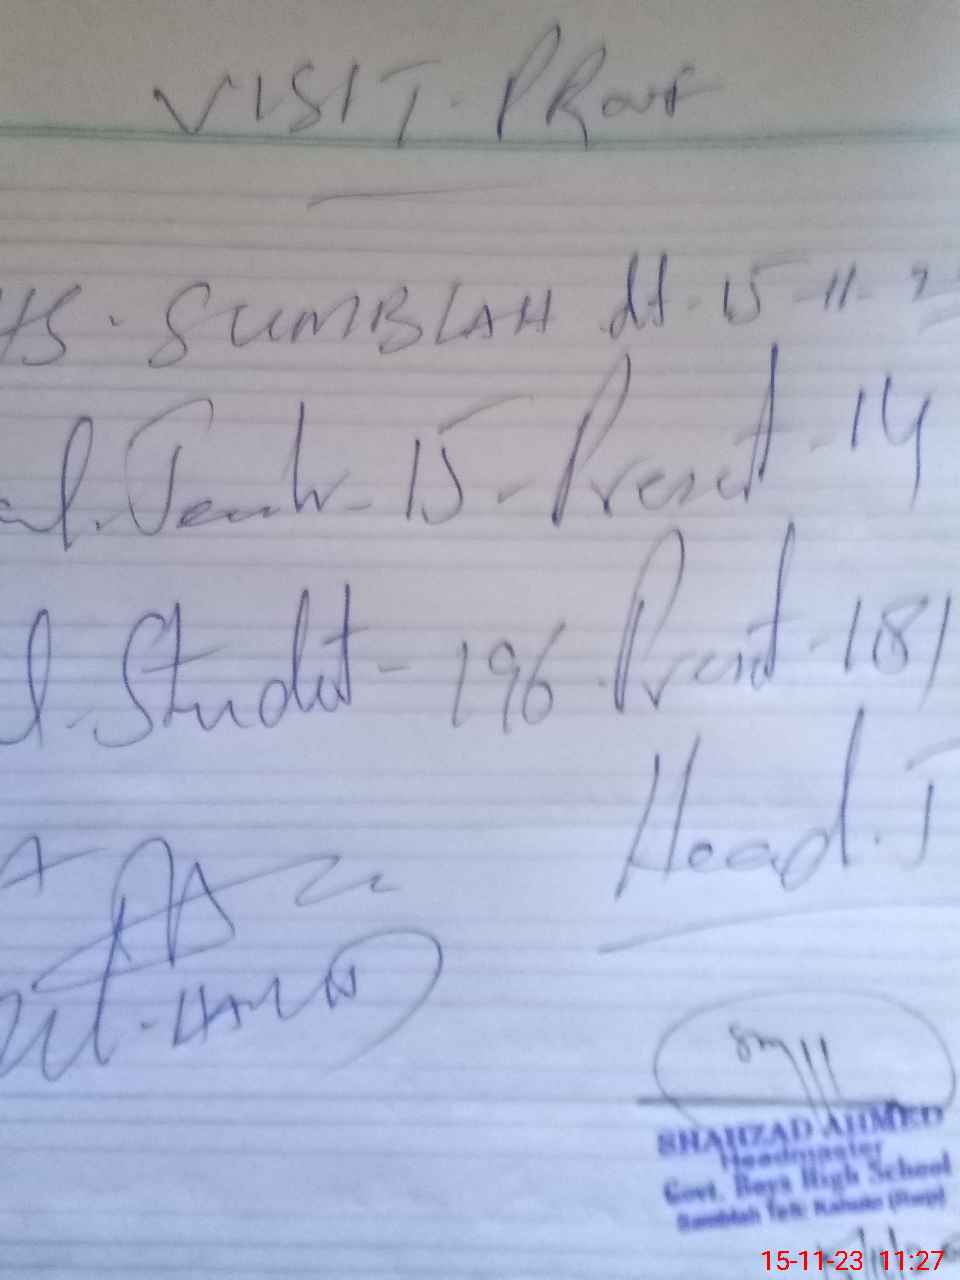 VISIT. PRouf
HS. SUMBLAH dt. 15-11-2
al. Teachr - 15 - Present - 14
l. Student - 196. Present - 181
Head. T
SHAHZAD AHMED
Headmaster
Govt. Boys High School
Sumblah Teh: Kahuta (Rwp)
15-11-23 11:27